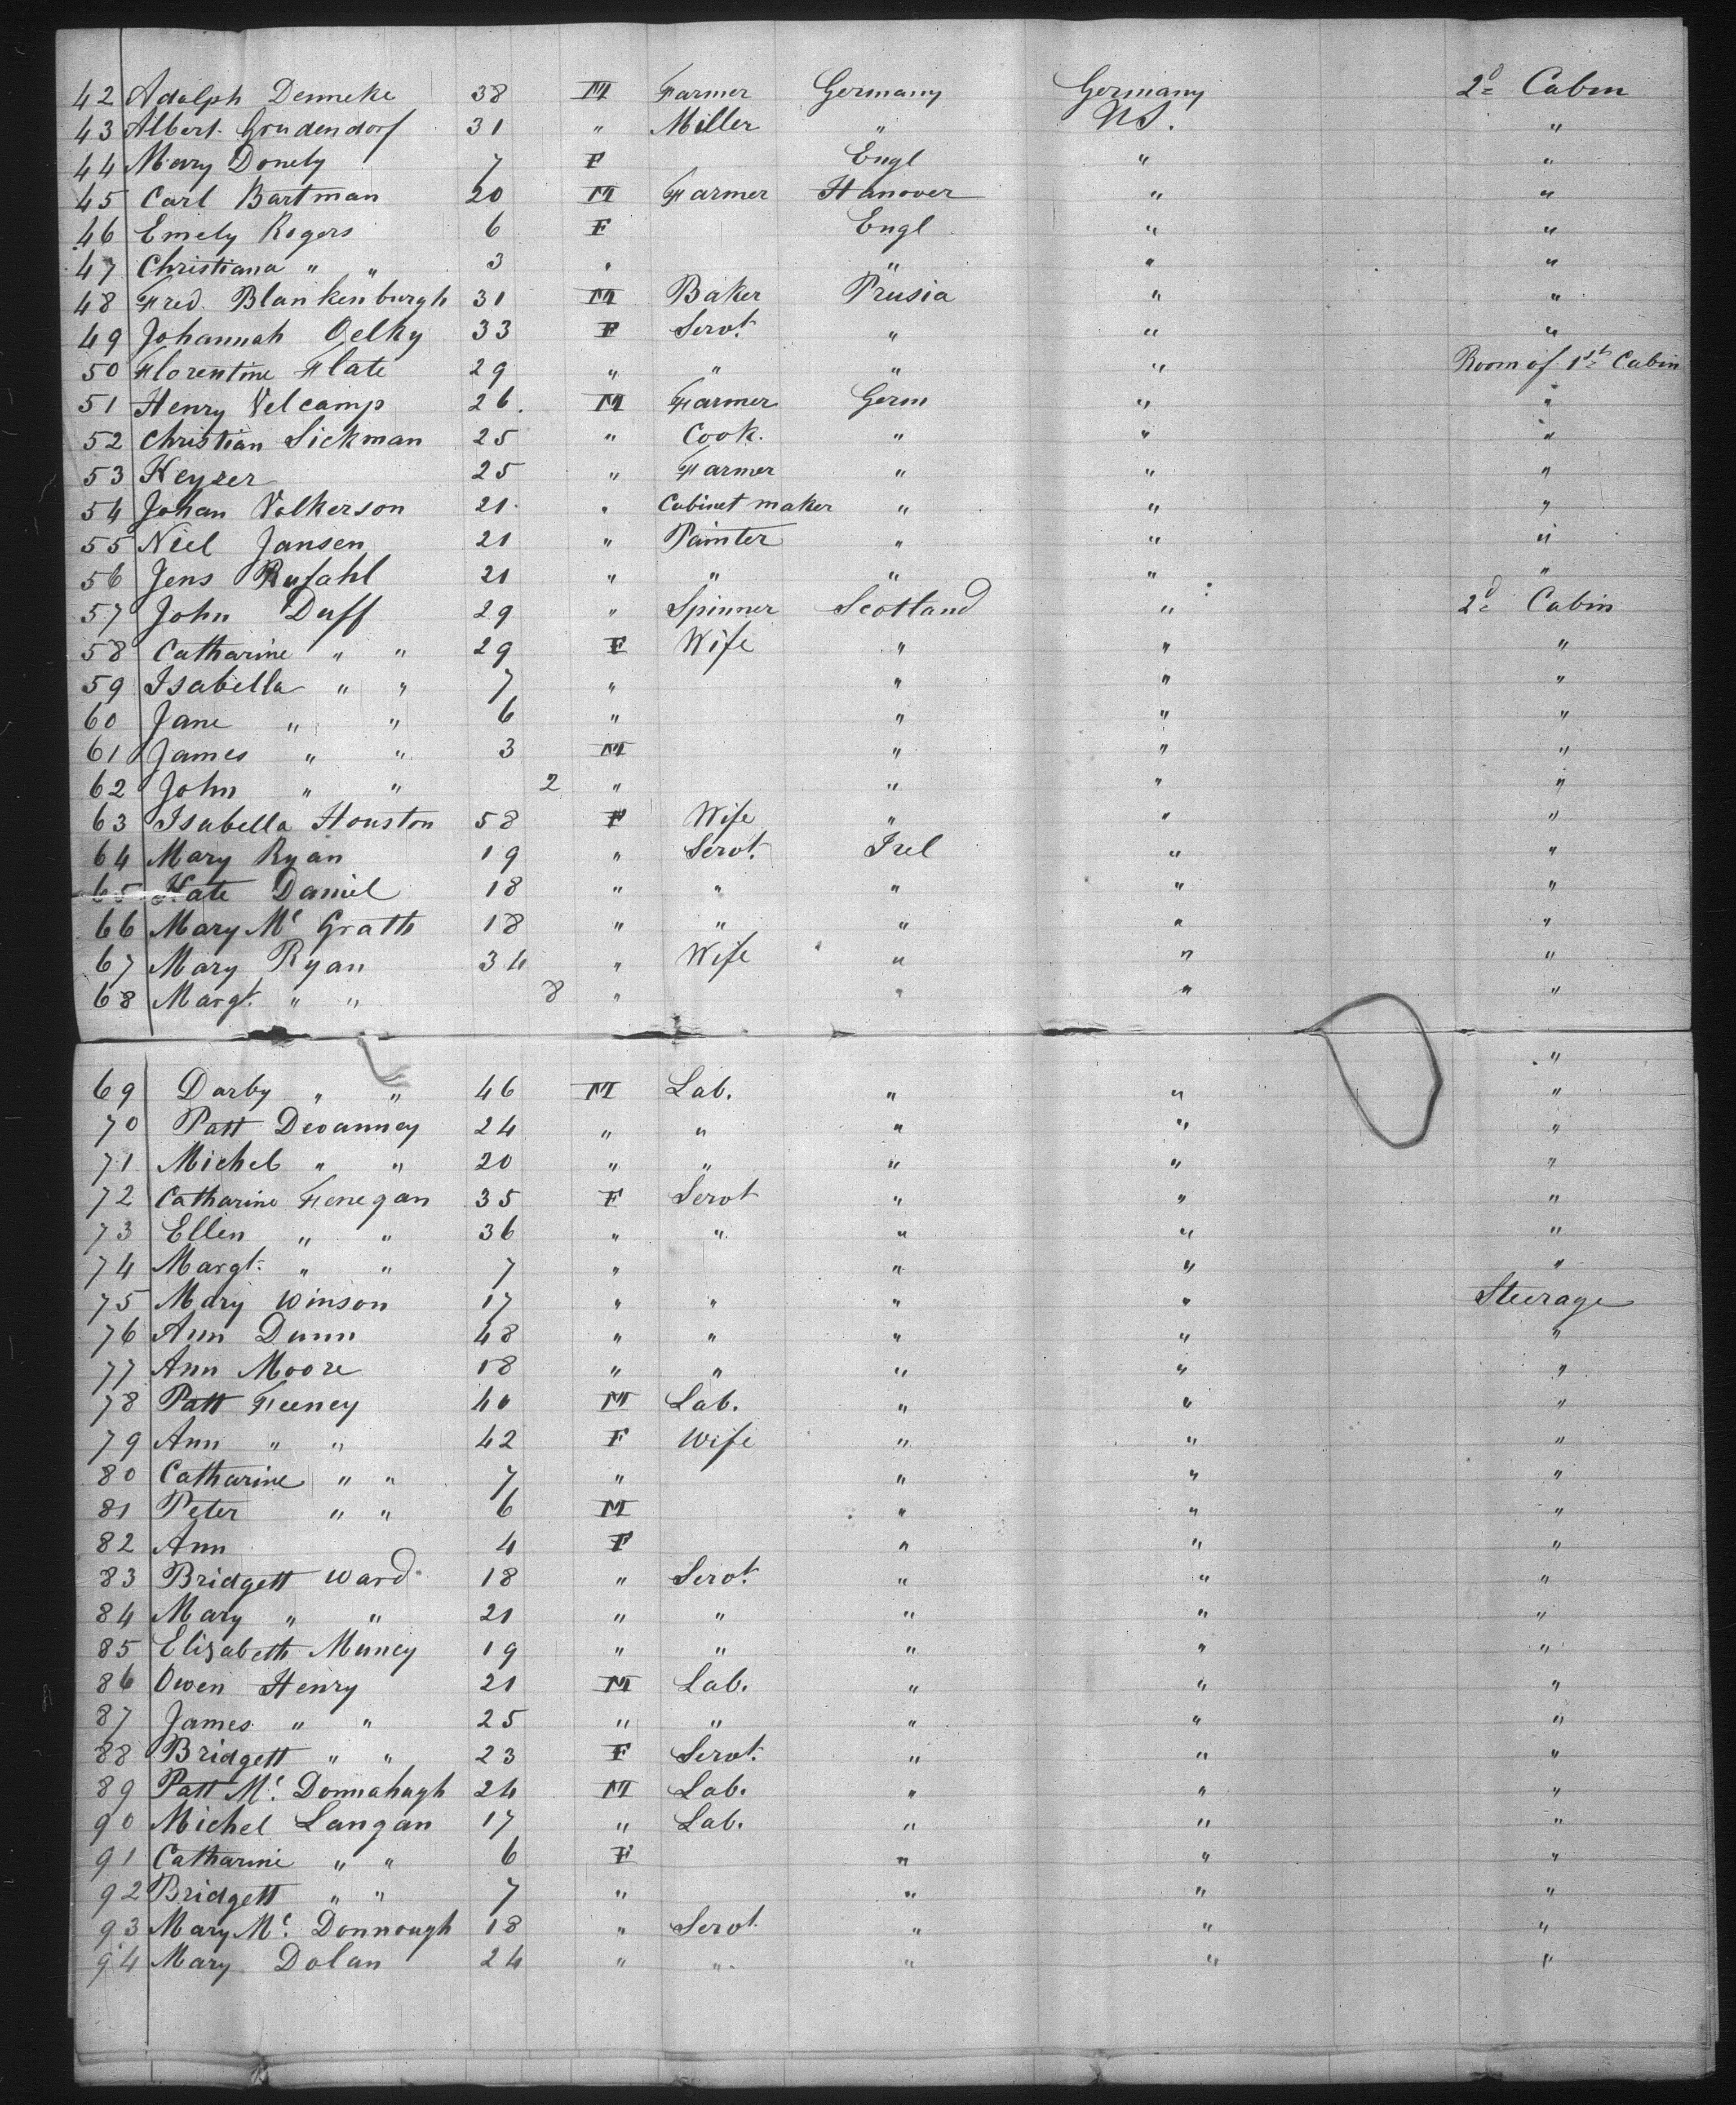 42 Adolph Denneke 38 M Farmer Germany Germany 2d Cabin
43 Albert Grudendorf 31 " Miller " US. "
44 Mary Donely 7 F Engl " "
45 Carl Bartman 20 M Farmer Hanover " "
46 Emely Rogers 6 F Engl " "
47 Christiana " " 3 " " " "
48 Fred. Blankenburgh 31 M Baker Prusia " "
49 Johannah Oelky 33 F Servt. " " "
50 Florentine Flate 29 " " " " Room of 1st Cabin
51 Henry Velcamp 26. M Farmer Germ " "
52 Christian Sickman 25 " Cook. " " "
53 Keyser 25 " Farmer " " "
54 Johan Volkerson 21 " Cabinet maker " " "
55 Niel Jansen 21 " Painter " " "
56 Jens Rufahl 21 " " " " "
57 John Duff 29 " Spinner Scotland " 2d Cabin
58 Catharine " " 29 F Wife " " "
59 Isabella " " 7 " " " "
60 Jane " " 6 " " " "
61 James " " 3 M " " "
62 John " " 2 " " " "
63 Isabella Houston 58 F Wife " " "
64 Mary Ryan 19 " Servt. Irel " "
65 Kate Daniel 18 " " " " "
66 Mary Mc Grath 18 " " " " "
67 Mary Ryan 34 " Wife " " "
68 Margt. " " 8 " " " "
"
69 Darby " " 46 M Lab. " " "
70 Patt Devanney 24 " " " " "
71 Michel " " 20 " " " " "
72 Catharine Fenegan 35 F Servt " " "
73 Ellen " " 36 " " " " "
74 Margt. " " 7 " " " "
75 Mary Winson 17 " " " " Steerage
76 Ann Dunn 48 " " " " "
77 Ann Moore 18 " " " " "
78 Patt Feeney 40 M Lab. " " "
79 Ann " " 42 F Wife " " "
80 Catharine " " 7 " " " "
81 Peter " " 6 M " " "
82 Ann 4 F " " "
83 Bridgett Ward 18 " Servt. " " "
84 Mary " " 21 " " " " "
85 Elizabeth Muncy 19 " " " " "
86 Owen Henry 21 M Lab. " " "
87 James " " 25 " " " " "
88 Bridgett " " 23 F Servt. " " "
89 Patt Mc. Donnahugh 24 M Lab. " " "
90 Michel Langan 17 " Lab. " " "
91 Catharine " " 6 F " " "
92 Bridgett " " 7 " " " "
93 Mary Mc. Donnough 18 " Servt " " "
94 Mary Dolan 24 " " " " "